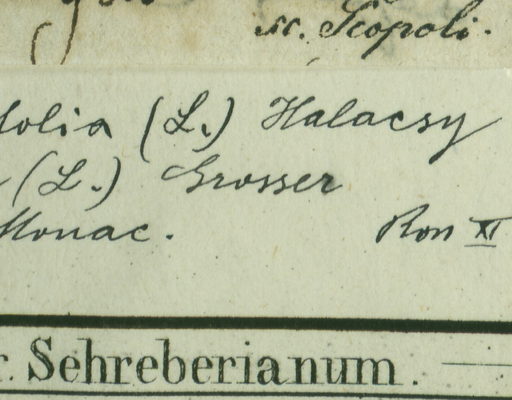 sc. Scopoli.
folia (L.) Halacsy
(L.) Grosser
Monac. Ron XI
r. Schreberianum.